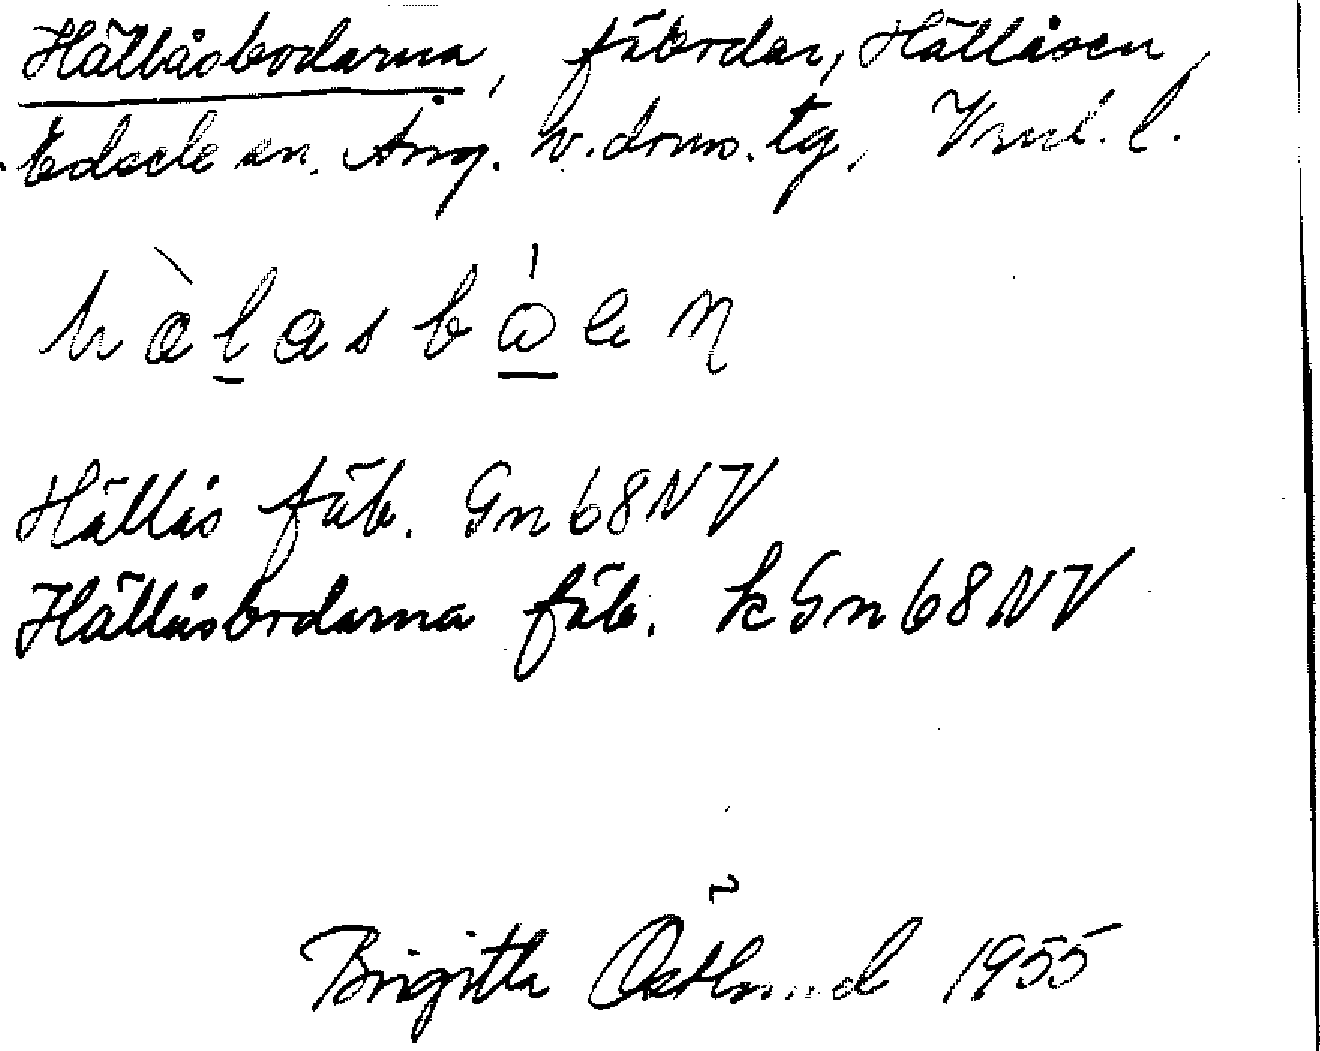 Hällåsbodarna, fäbodar, Hällåsen,
Edsele sn. Ång. v. doms. tg, Vnrl. l.
hàḷasbá̱en
Hällås fäb. Gn68NV
Hällåsbodarna fäb. kGn68NV
Birgitta Östlund 1955